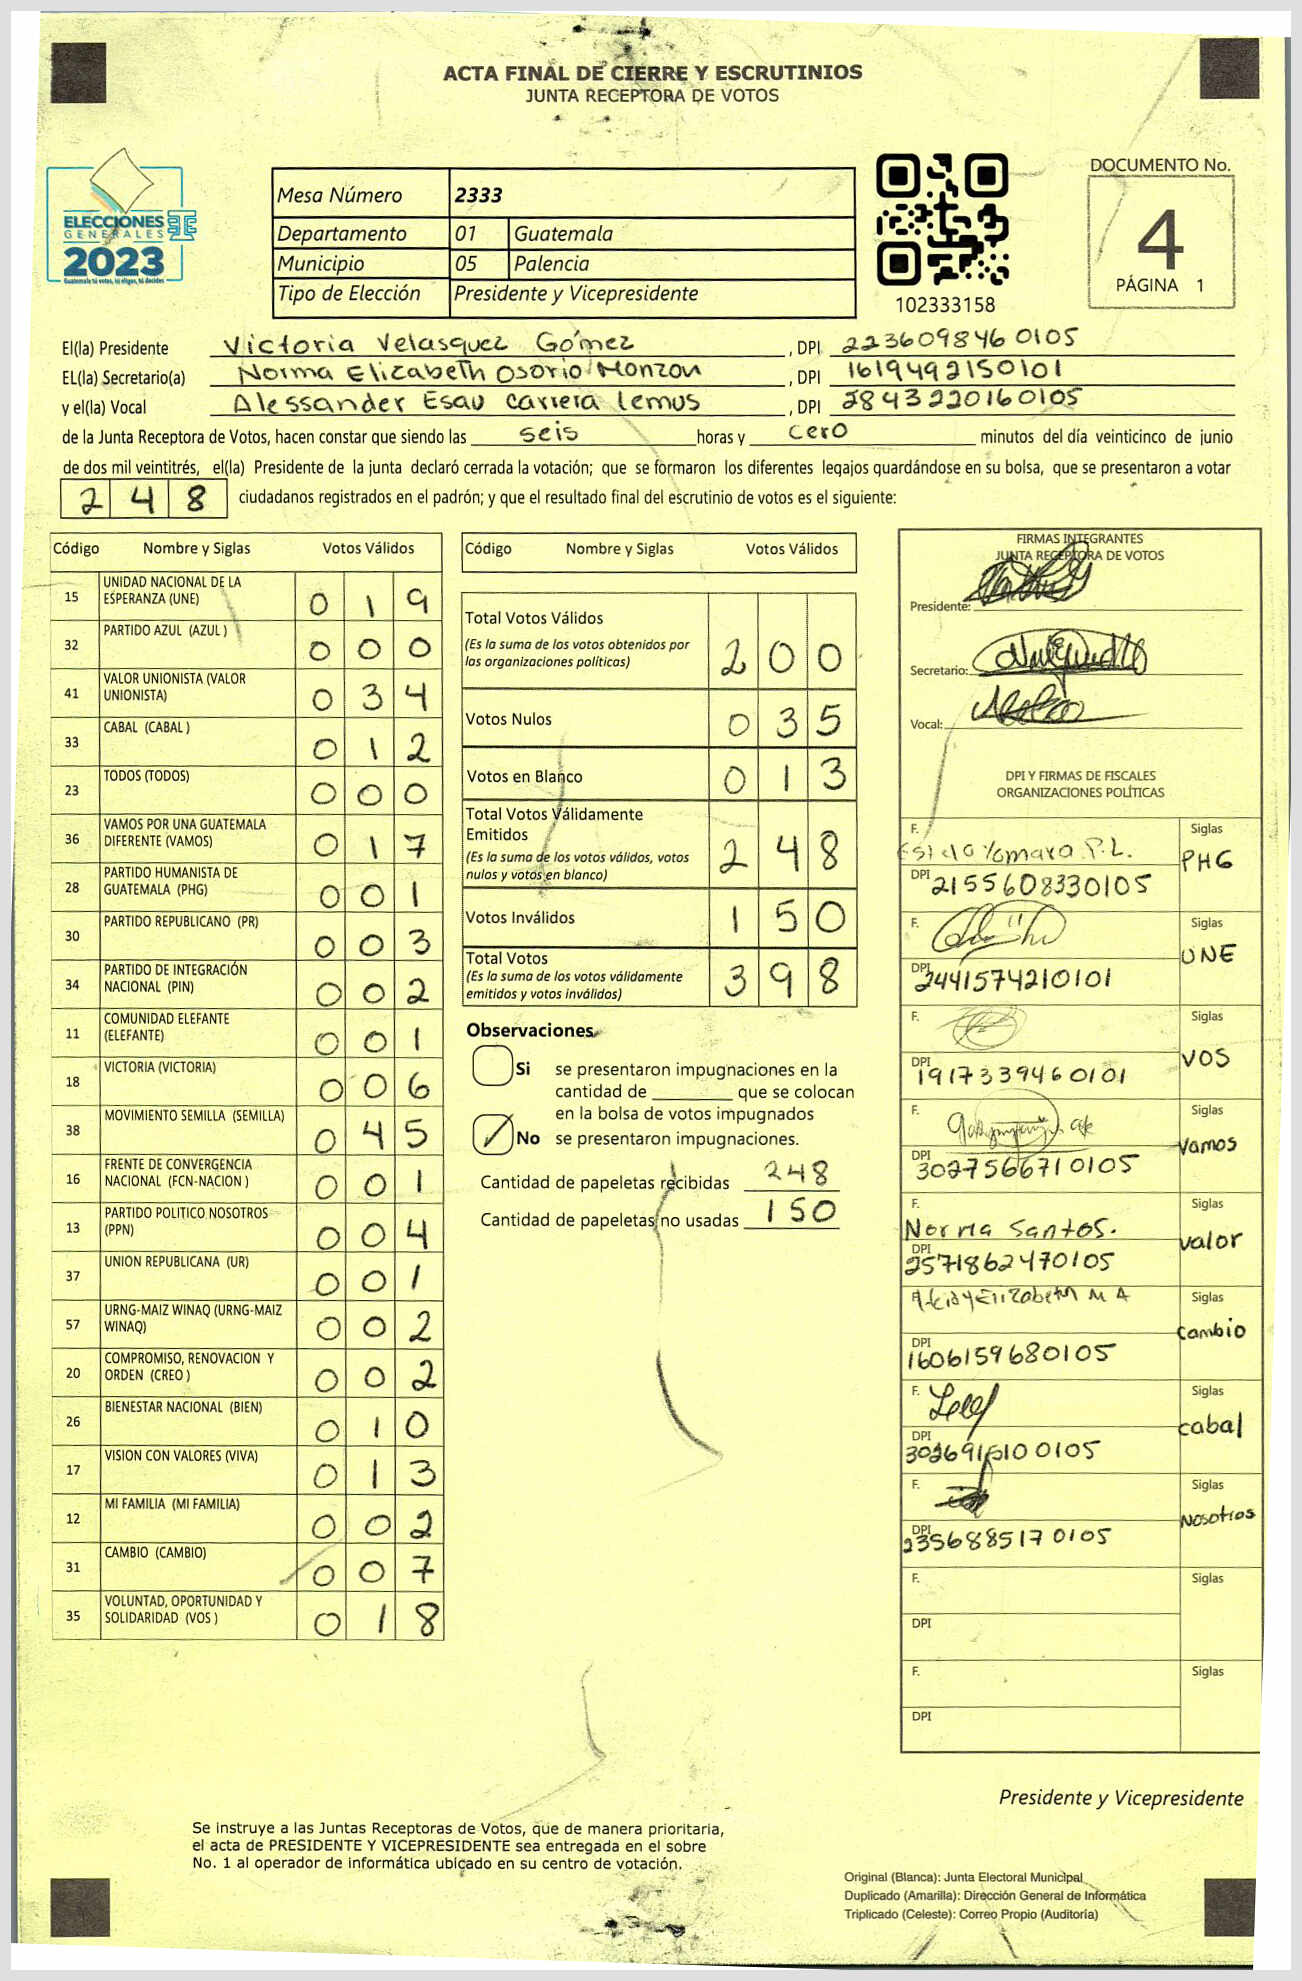 ACTA FINAL DE CIERRE Y ESCRUTINIOS
JUNTA RECEPTORA DE VOTOS
ELECCIONES
GENERALES
2023
Guatemala tú votas, tú eliges, tú decides
Mesa Número 2333
Departamento 01 Guatemala
Municipio 05 Palencia
Tipo de Elección Presidente y Vicepresidente
102333158
DOCUMENTO No.
4
PÁGINA 1
El(la) Presidente Victoria Velasquez Gómez , DPI 223609846 0105
EL(la) Secretario(a) Norma Elizabeth Osorio Monzon , DPI 1619492150101
y el(la) Vocal Alessander Esau Carrera Lemus , DPI 2843220160105
de la Junta Receptora de Votos, hacen constar que siendo las seis horas y cero minutos del día veinticinco de junio
de dos mil veintitrés, el(la) Presidente de la junta declaró cerrada la votación; que se formaron los diferentes legajos guardándose en su bolsa, que se presentaron a votar
248 ciudadanos registrados en el padrón; y que el resultado final del escrutinio de votos es el siguiente:
Código Nombre y Siglas Votos Válidos
15 UNIDAD NACIONAL DE LA ESPERANZA (UNE) 0 1 9
32 PARTIDO AZUL (AZUL ) 0 0 0
41 VALOR UNIONISTA (VALOR UNIONISTA) 0 3 4
33 CABAL (CABAL ) 0 1 2
23 TODOS (TODOS) 0 0 0
36 VAMOS POR UNA GUATEMALA DIFERENTE (VAMOS) 0 1 7
28 PARTIDO HUMANISTA DE GUATEMALA (PHG) 0 0 1
30 PARTIDO REPUBLICANO (PR) 0 0 3
34 PARTIDO DE INTEGRACIÓN NACIONAL (PIN) 0 0 2
11 COMUNIDAD ELEFANTE (ELEFANTE) 0 0 1
18 VICTORIA (VICTORIA) 0 0 6
38 MOVIMIENTO SEMILLA (SEMILLA) 0 4 5
16 FRENTE DE CONVERGENCIA NACIONAL (FCN-NACION ) 0 0 1
13 PARTIDO POLITICO NOSOTROS (PPN) 0 0 4
37 UNION REPUBLICANA (UR) 0 0 1
57 URNG-MAIZ WINAQ (URNG-MAIZ WINAQ) 0 0 2
20 COMPROMISO, RENOVACION Y ORDEN (CREO ) 0 0 2
26 BIENESTAR NACIONAL (BIEN) 0 1 0
17 VISION CON VALORES (VIVA) 0 1 3
12 MI FAMILIA (MI FAMILIA) 0 0 2
31 CAMBIO (CAMBIO) 0 0 7
35 VOLUNTAD, OPORTUNIDAD Y SOLIDARIDAD (VOS ) 0 1 8
Código Nombre y Siglas Votos Válidos
Total Votos Válidos
(Es la suma de los votos obtenidos por
las organizaciones políticas) 2 0 0
Votos Nulos 0 3 5
Votos en Blanco 0 1 3
Total Votos Válidamente
Emitidos
(Es la suma de los votos válidos, votos
nulos y votos en blanco) 2 4 8
Votos Inválidos 1 5 0
Total Votos
(Es la suma de los votos válidamente
emitidos y votos inválidos) 3 9 8
Observaciones
Si se presentaron impugnaciones en la
cantidad de ________ que se colocan
en la bolsa de votos impugnados
No se presentaron impugnaciones.
Cantidad de papeletas recibidas 248
Cantidad de papeletas no usadas 150
FIRMAS INTEGRANTES
JUNTA RECEPTORA DE VOTOS
Presidente:
Secretario:
Vocal:
DPI Y FIRMAS DE FISCALES
ORGANIZACIONES POLÍTICAS
F. P.L. Siglas
DPI 2155608330105 PHG
F. Siglas
DPI 2441574210101 UNE
F. Siglas
DPI 1917339460101 VOS
F. Siglas
DPI 3027566710105 Vamos
F. Norma Santos. Siglas
DPI 2571862470105 valor
F. Elizabeth M A Siglas
DPI 1606159680105 cambio
F. Siglas
DPI cabal
F. Siglas
DPI 2356885170105 Nosotros
F. Siglas
DPI
F. Siglas
DPI
Presidente y Vicepresidente
Se instruye a las Juntas Receptoras de Votos, que de manera prioritaria,
el acta de PRESIDENTE Y VICEPRESIDENTE sea entregada en el sobre
No. 1 al operador de informática ubicado en su centro de votación.
Original (Blanca): Junta Electoral Municipal
Duplicado (Amarilla): Dirección General de Informática
Triplicado (Celeste): Correo Propio (Auditoría)